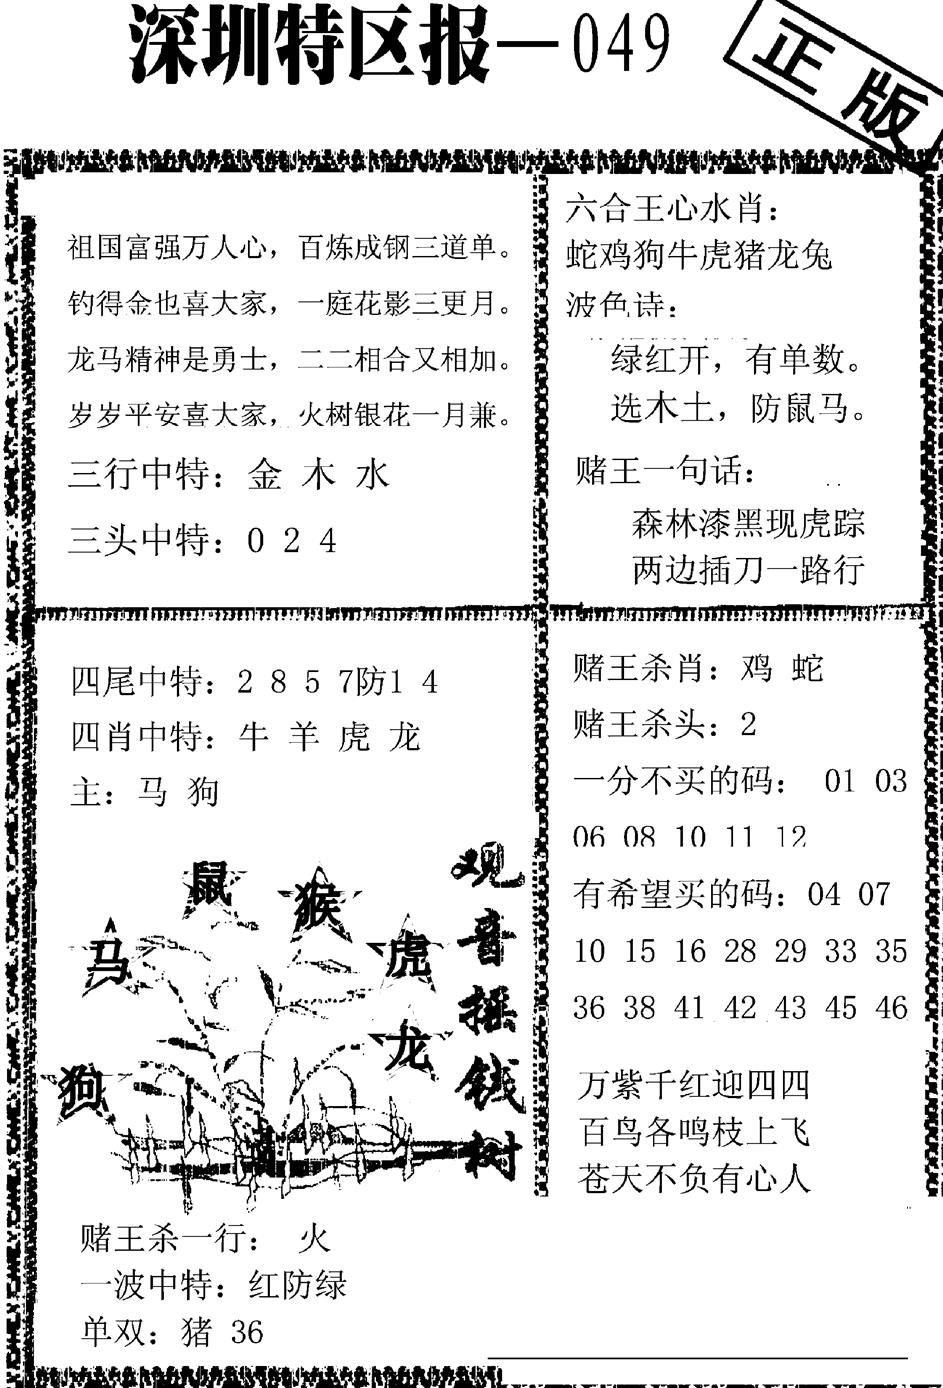 深圳特区报—049
正版
祖国富强万人心，百炼成钢三道单。
钓得金也喜大家，一庭花影三更月。
龙马精神是勇士，二二相合又相加。
岁岁平安喜大家，火树银花一月兼。
三行中特：金 木 水
三头中特：0 2 4
六合王心水肖：
蛇鸡狗牛虎猪龙兔
波色诗：
绿红开，有单数。
选木土，防鼠马。
赌王一句话：
森林漆黑现虎踪
两边插刀一路行
四尾中特：2 8 5 7防1 4
四肖中特：牛 羊 虎 龙
主：马 狗
鼠
猴
马
虎
龙
狗
观音摇钱树
赌王杀一行： 火
一波中特：红防绿
单双：猪 36
赌王杀肖：鸡 蛇
赌王杀头：2
一分不买的码： 01 03
06 08 10 11 12
有希望买的码：04 07
10 15 16 28 29 33 35
36 38 41 42 43 45 46
万紫千红迎四四
百鸟各鸣枝上飞
苍天不负有心人